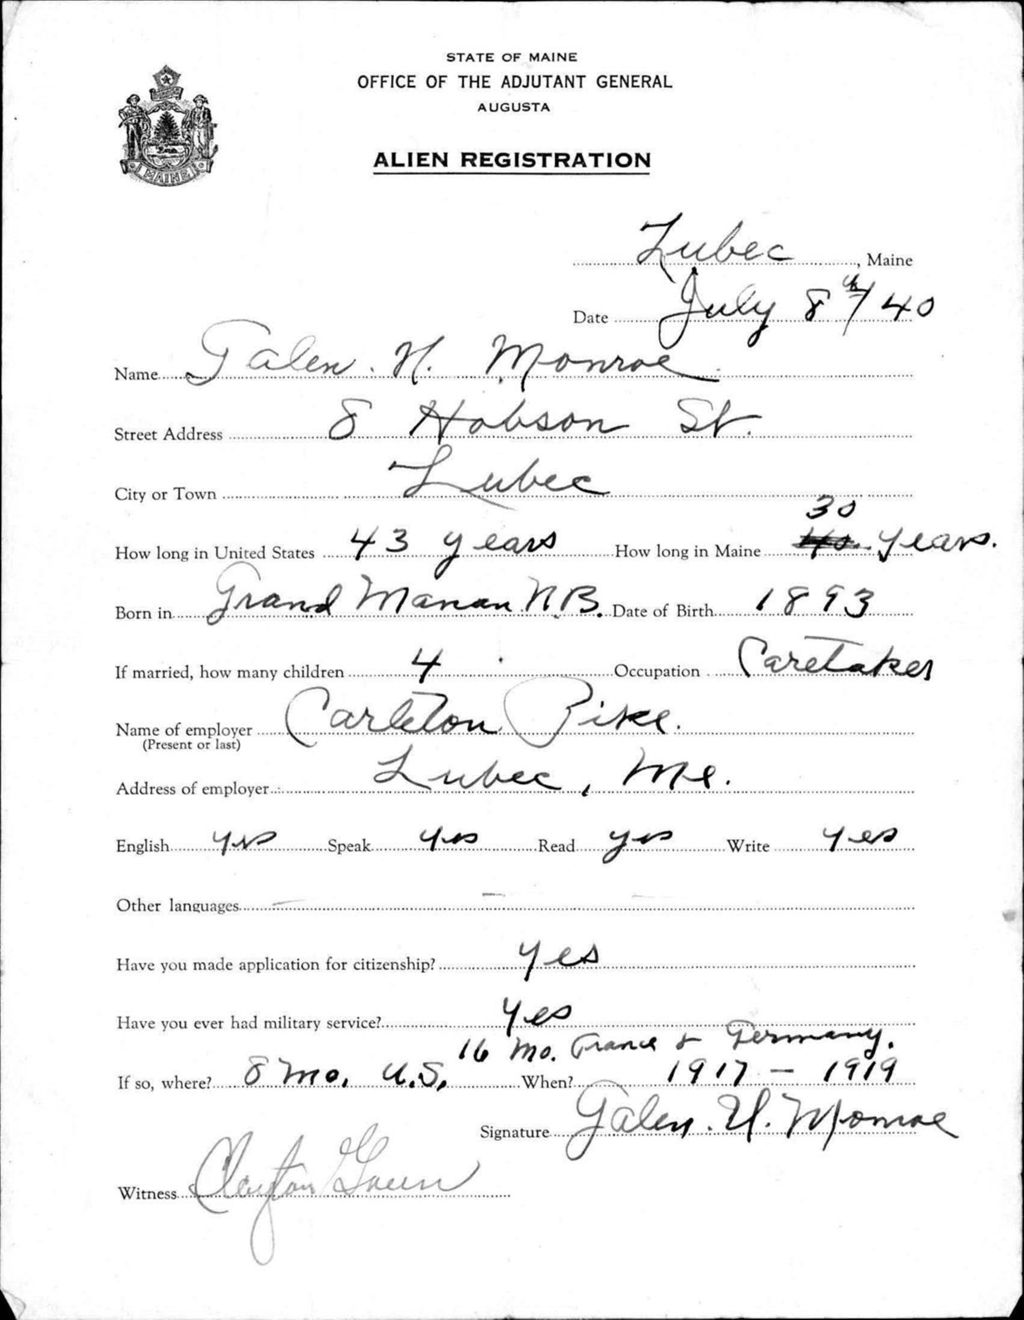 STATE OF MAINE
OFFICE OF THE ADJUTANT GENERAL
AUGUSTA
ALIEN REGISTRATION
MAINE
Lubec, Maine
Date July 8th/40
Name Galen. H. Monroe
Street Address 8 Hobson St.
City or Town Lubec
30
How long in United States 43 years How long in Maine years.
Born in Grand Manan N.B. Date of Birth 1893
If married, how many children 4 Occupation Caretaker
Name of employer Carleton Pike.
(Present or last)
Address of employer Lubec, Me.
English yes Speak yes Read yes Write yes
Other languages —
Have you made application for citizenship? yes
Have you ever had military service? yes
16 mo. France & Germany.
If so, where? 8 mo. U.S. When? 1917 - 1919
Signature Galen. H. Monroe
Witness Clayton Green